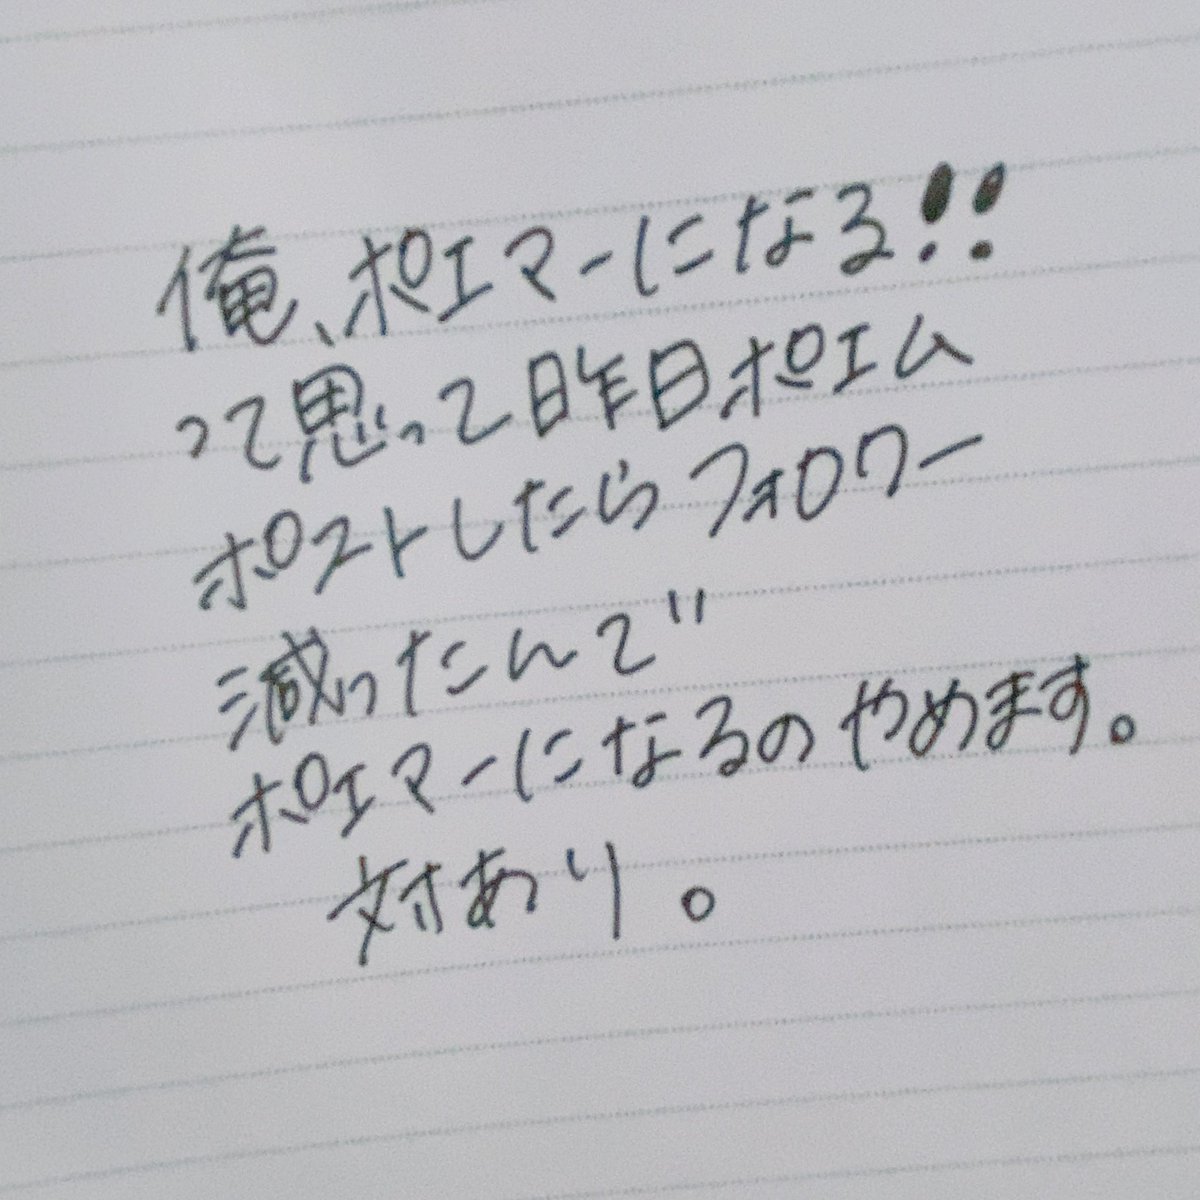 俺、ポエマーになる!!
って思って昨日ポエム
ポストしたらフォロワー
減ったんで
ポエマーになるのやめます。
対あり。